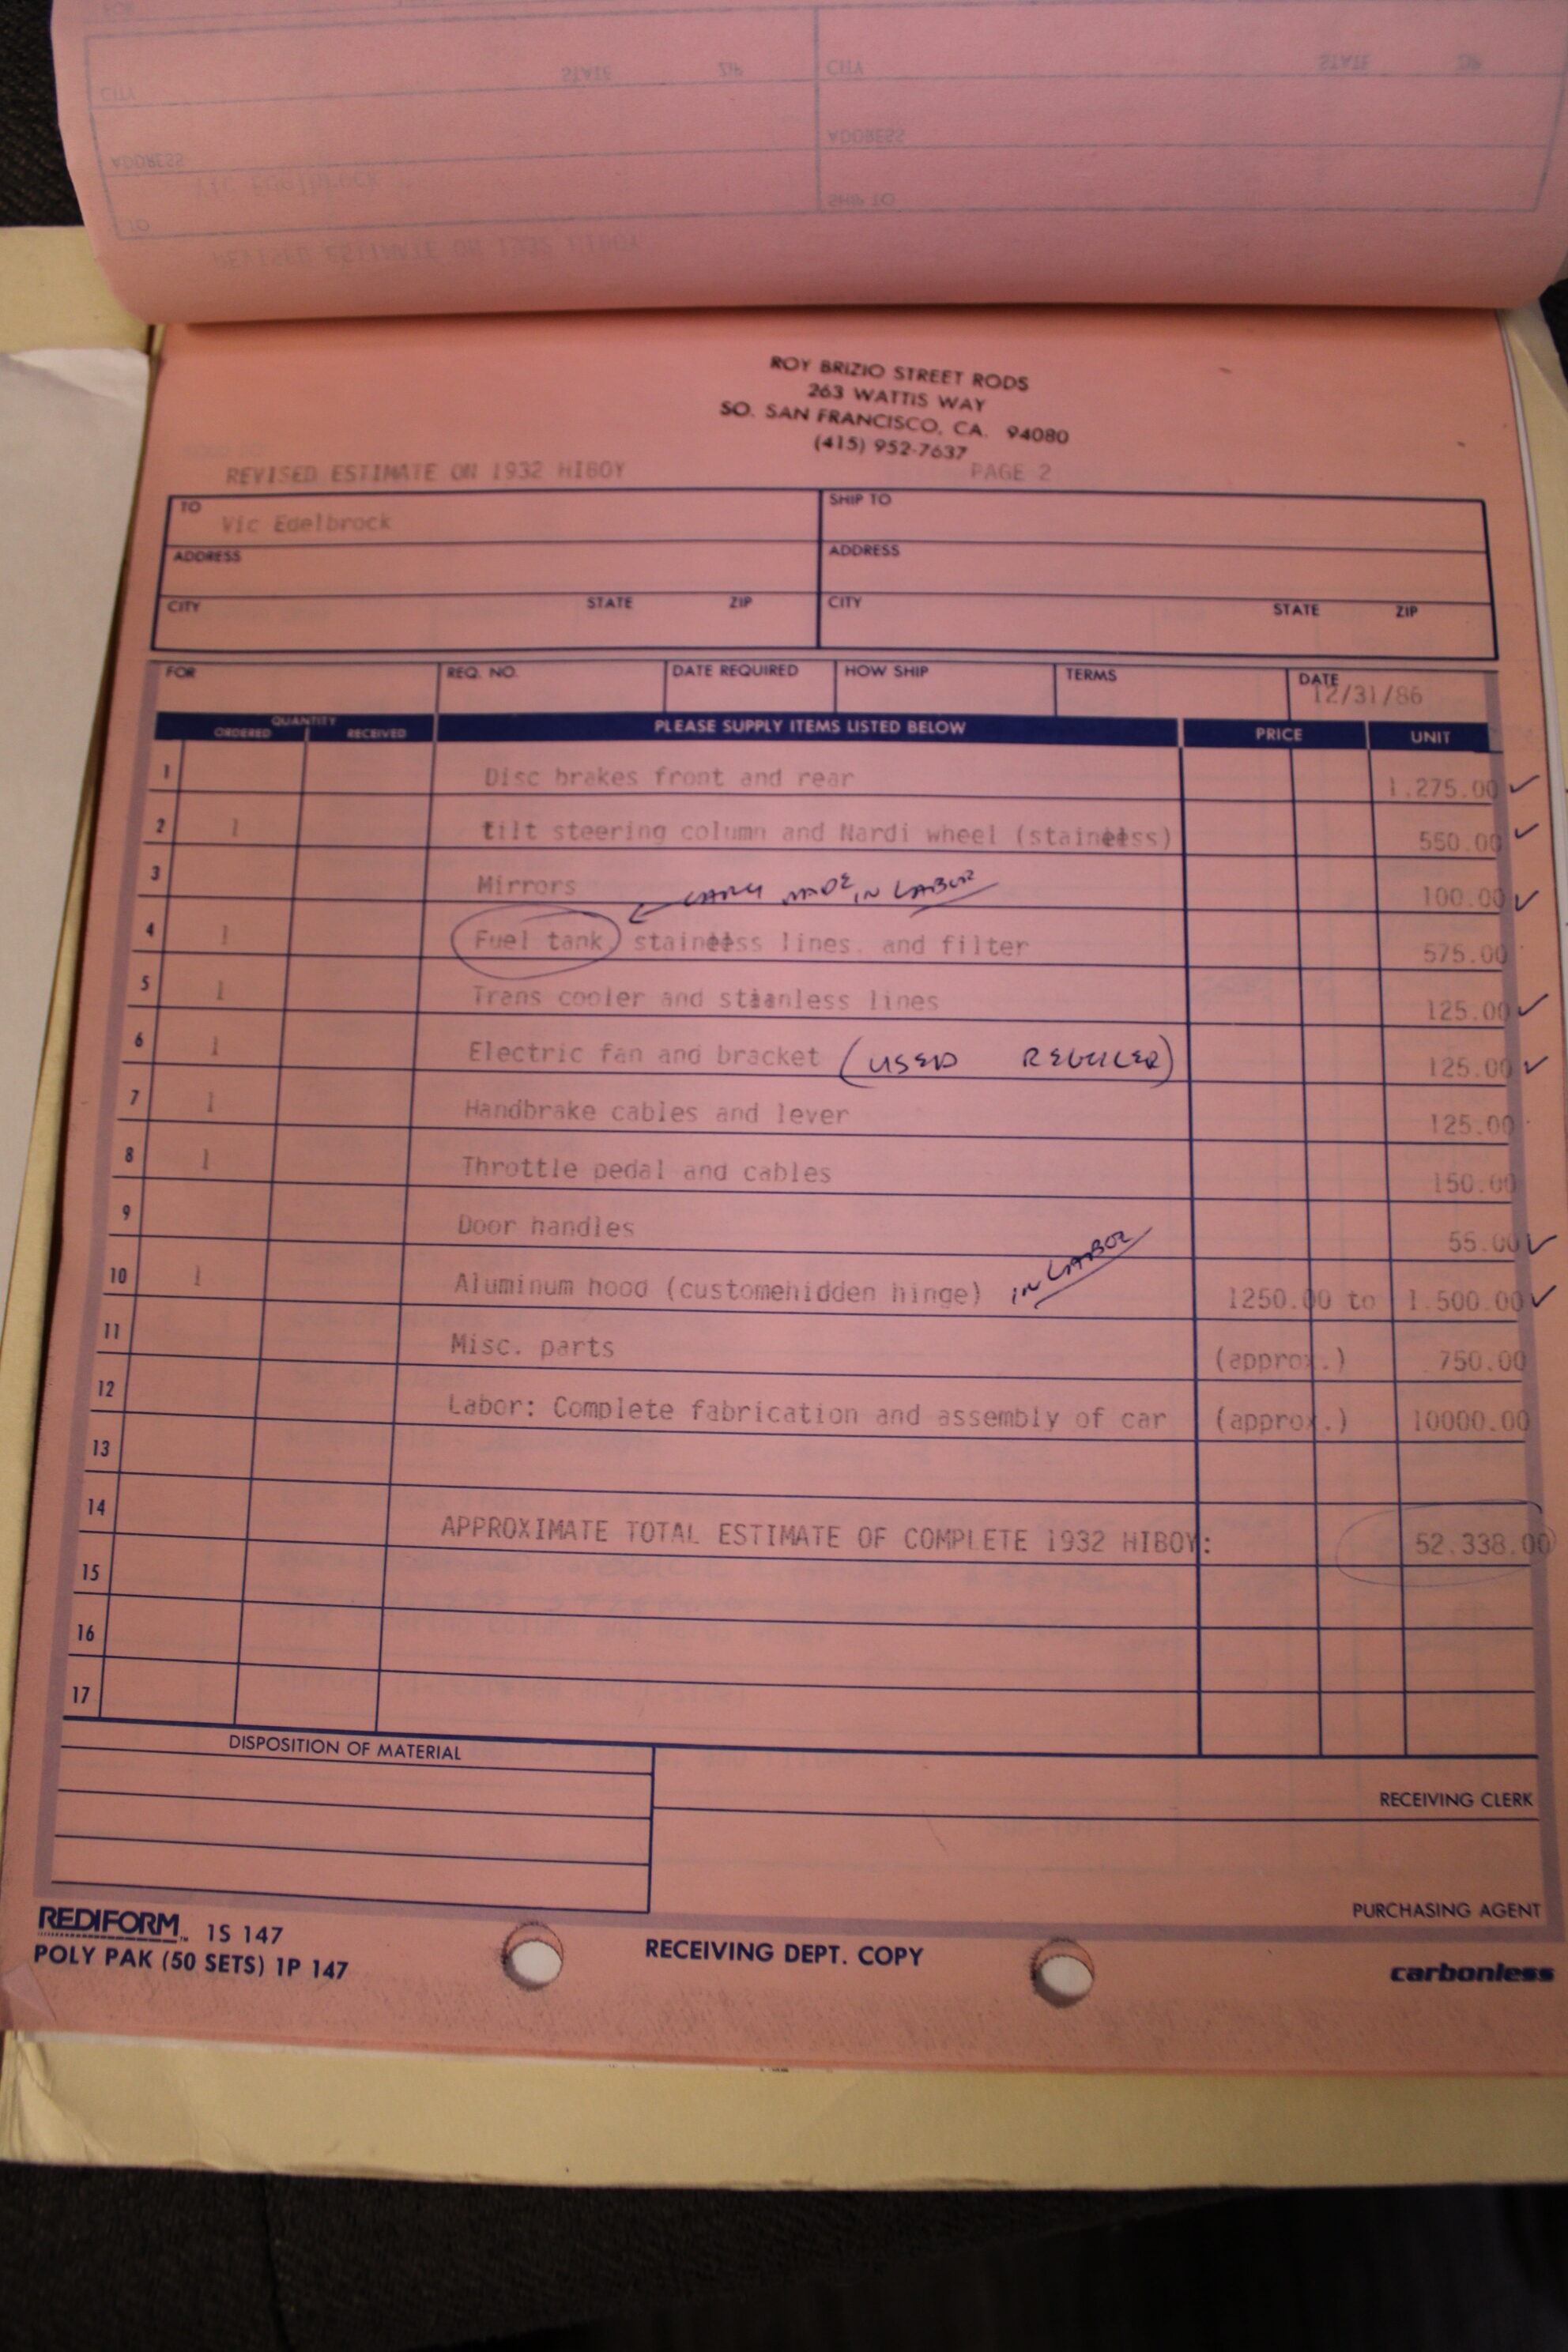 ROY BRIZIO STREET RODS
263 WATTIS WAY
SO. SAN FRANCISCO, CA. 94080
(415) 952-7637
REVISED ESTIMATE ON 1932 HIBOY PAGE 2
TO Vic Edelbrock SHIP TO
ADDRESS ADDRESS
CITY STATE ZIP CITY STATE ZIP
FOR REQ. NO. DATE REQUIRED HOW SHIP TERMS DATE 12/31/86
QUANTITY
ORDERED RECEIVED PLEASE SUPPLY ITEMS LISTED BELOW PRICE UNIT
1 Disc brakes front and rear 1.275.00 ✓
2 1 tilt steering column and Nardi wheel (stainless) 550.00 ✓
3 Mirrors 100.00 ✓
MADE IN LABOR
4 1 Fuel tank stainless lines. and filter 575.00
5 1 Trans cooler and stianless lines 125.00 ✓
6 1 Electric fan and bracket (USED) 125.00 ✓
7 1 Handbrake cables and lever 125.00
8 1 Throttle pedal and cables 150.00
9 Door handles 55.00 ✓
10 1 Aluminum hood (customehidden hinge) IN LABOR 1250.00 to 1.500.00 ✓
11 Misc. parts (approx.) 750.00
12 Labor: Complete fabrication and assembly of car (approx.) 10000.00
13
14 APPROXIMATE TOTAL ESTIMATE OF COMPLETE 1932 HIBOY: 52.338.00
15
16
17
DISPOSITION OF MATERIAL
RECEIVING CLERK
PURCHASING AGENT
REDIFORM™ 1S 147
POLY PAK (50 SETS) 1P 147
RECEIVING DEPT. COPY
carbonless